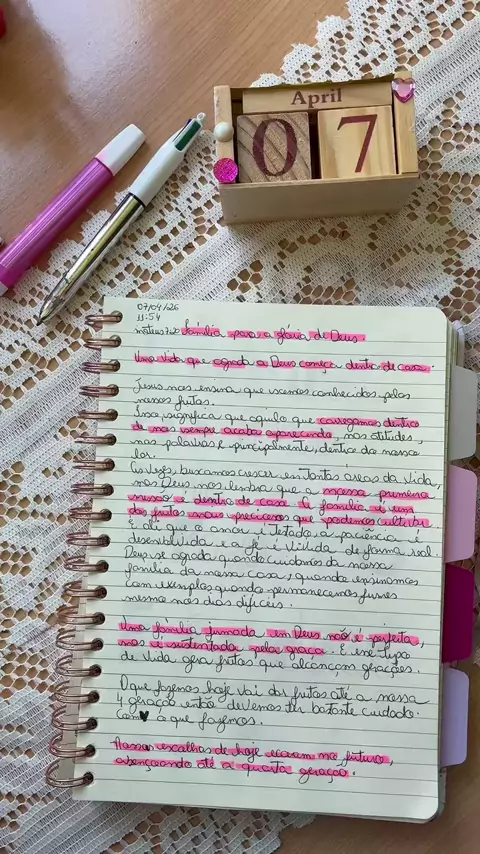 April
07
07/04/26
11:54
mateus 7:20 Família para a glória de Deus.
Uma vida que agrada a Deus começa dentro de casa.
Jesus nos ensina que seremos conhecidos pelos
nossos frutos.
Isso significa que aquilo que carregamos dentro
de nós sempre acaba aparecendo, nas atitudes,
nas palavras e principalmente, dentro do nosso
lar.
As vezes, buscamos crescer em tantas áreas da vida,
mas Deus nos lembra que a nossa primeira
missão é dentro de casa. A família é um
dos frutos mais preciosos que podemos cultivar.
É ali que o amor é testado, a paciência é
desenvolvida e a fé é vivida de forma real.
Deus se agrada quando cuidamos da nossa
família da nossa casa, quando ensinamos
com exemplos quando permanecemos firmes
mesmo nos dias difíceis.
Uma família firmada em Deus não é perfeita,
mas é sustentada pela graça. E esse tipo
de vida gera frutos que alcançam gerações.
O que fazemos hoje vai dar frutos até a nossa
4 geração então devemos ter bastante cuidado
com o que fazemos.
Nossas escolhas de hoje ecoam no futuro,
abençoando até a quarta geração.